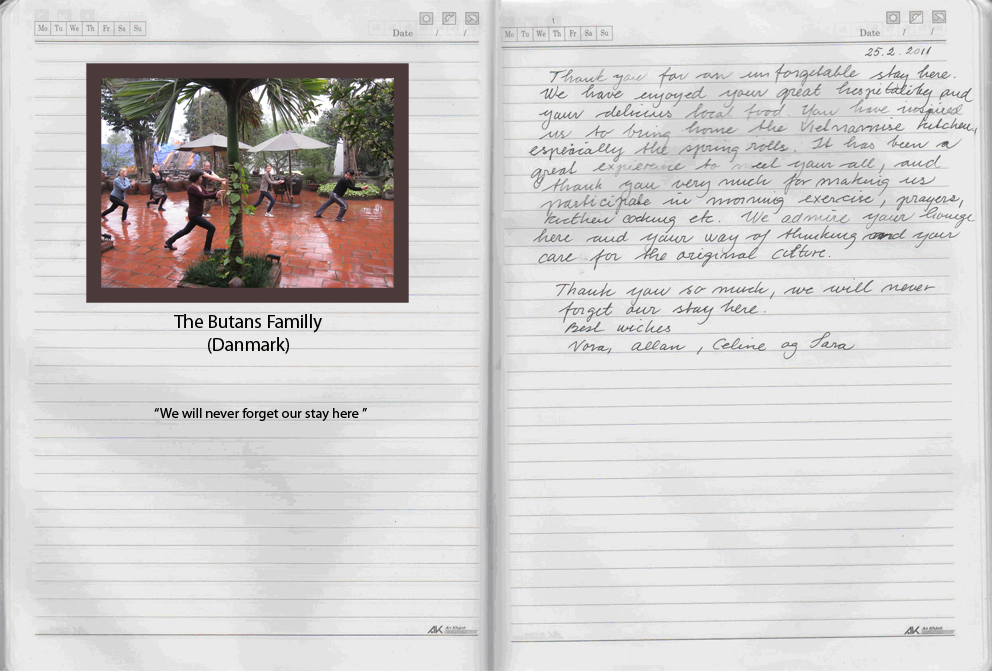 Mo Tu We Th Fr Sa Su
Date / /
The Butans Familly
(Danmark)
“We will never forget our stay here ”
AK An Khánh
Mo Tu We Th Fr Sa Su
Date / /
25.2.2011
Thank you for an unforgetable stay here.
We have enjoyed your great hospitality and
your delicius local food. You have inspired
us to bring home the Vietnamise kitchen,
especially the spring rolls. It has been a
great experience to meet your all, and
thank you very much for making us
participate in morning exercise, prayers,
kitchen cooking etc. We admire your
here and your way of thinking and your
care for the original culture.
Thank you so much, we will never
forget our stay here.
Best wiches
Allan, Celine og Sara
AK An Khánh